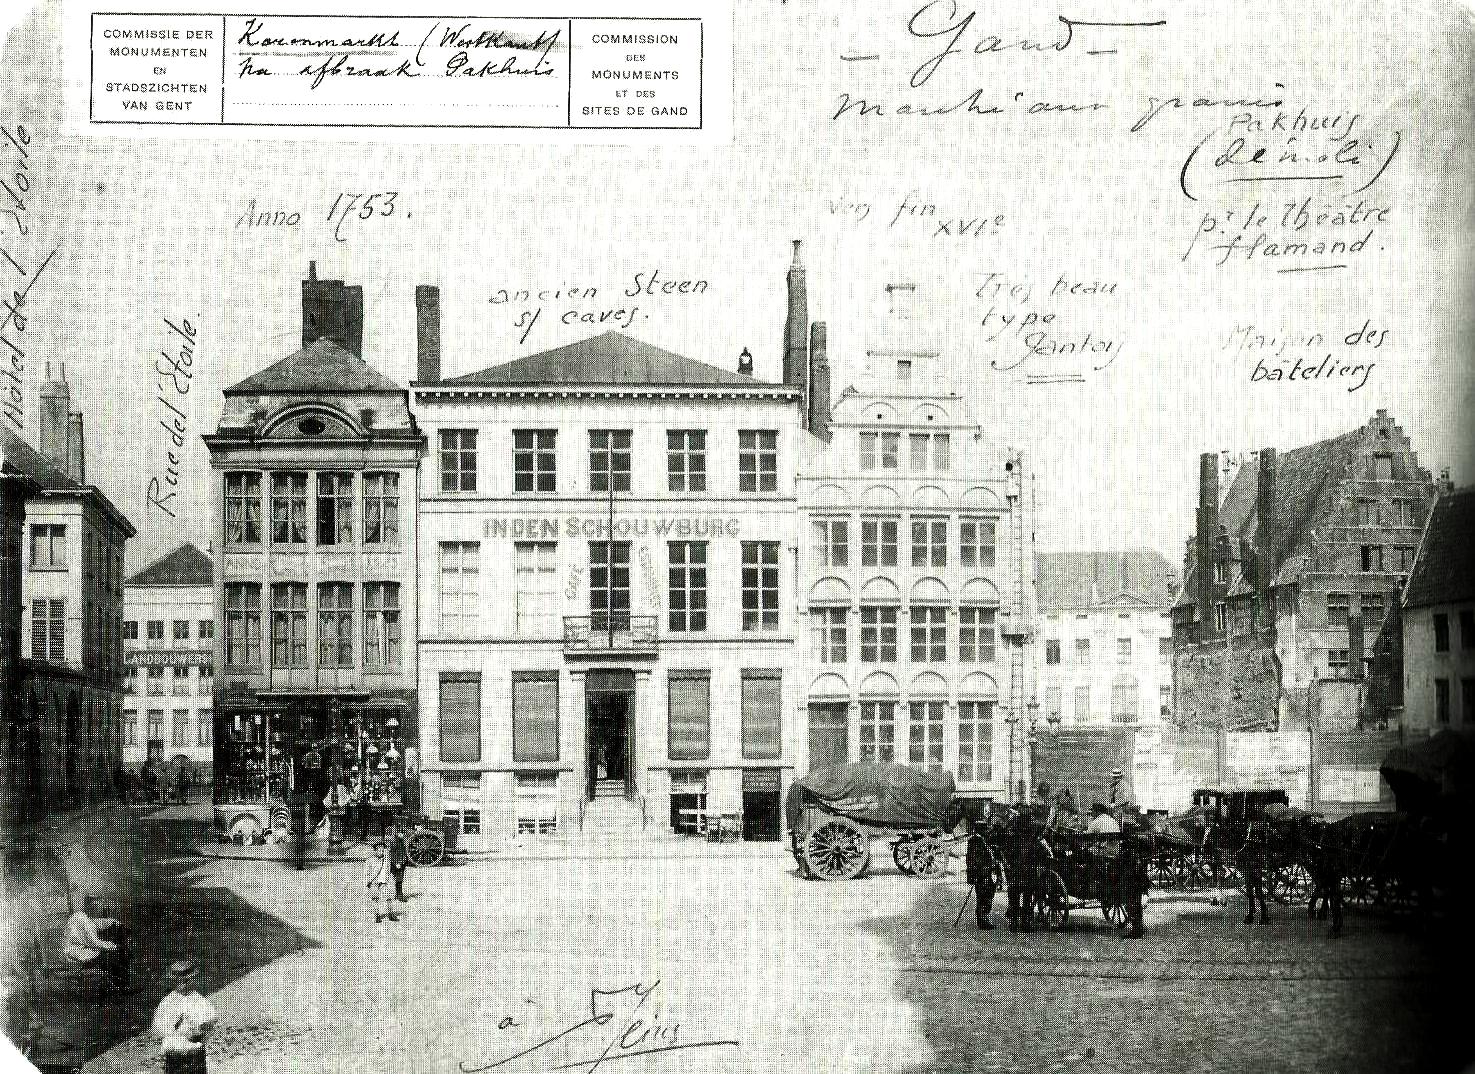 COMMISSIE DER
MONUMENTEN
EN
STADSZICHTEN
VAN GENT
Korenmarkt (Westkant)
na afbraak Pakhuis
COMMISSION
DES
MONUMENTS
ET DES
SITES DE GAND
- Gand -
Marché aux grains
Pakhuis
(démoli)
pr. le Théâtre
flamand.
Anno 1753.
vers fin
XVIe
ancien Steen
s/ caves.
Très beau
type
gantois
Maison des
bateliers
Hôtel de l'Etoile
Rue de l'Étoile.
IN DEN SCHOUWBURG
CAFÉ
ESTAMINET
ANNO
LANDBOUW
à